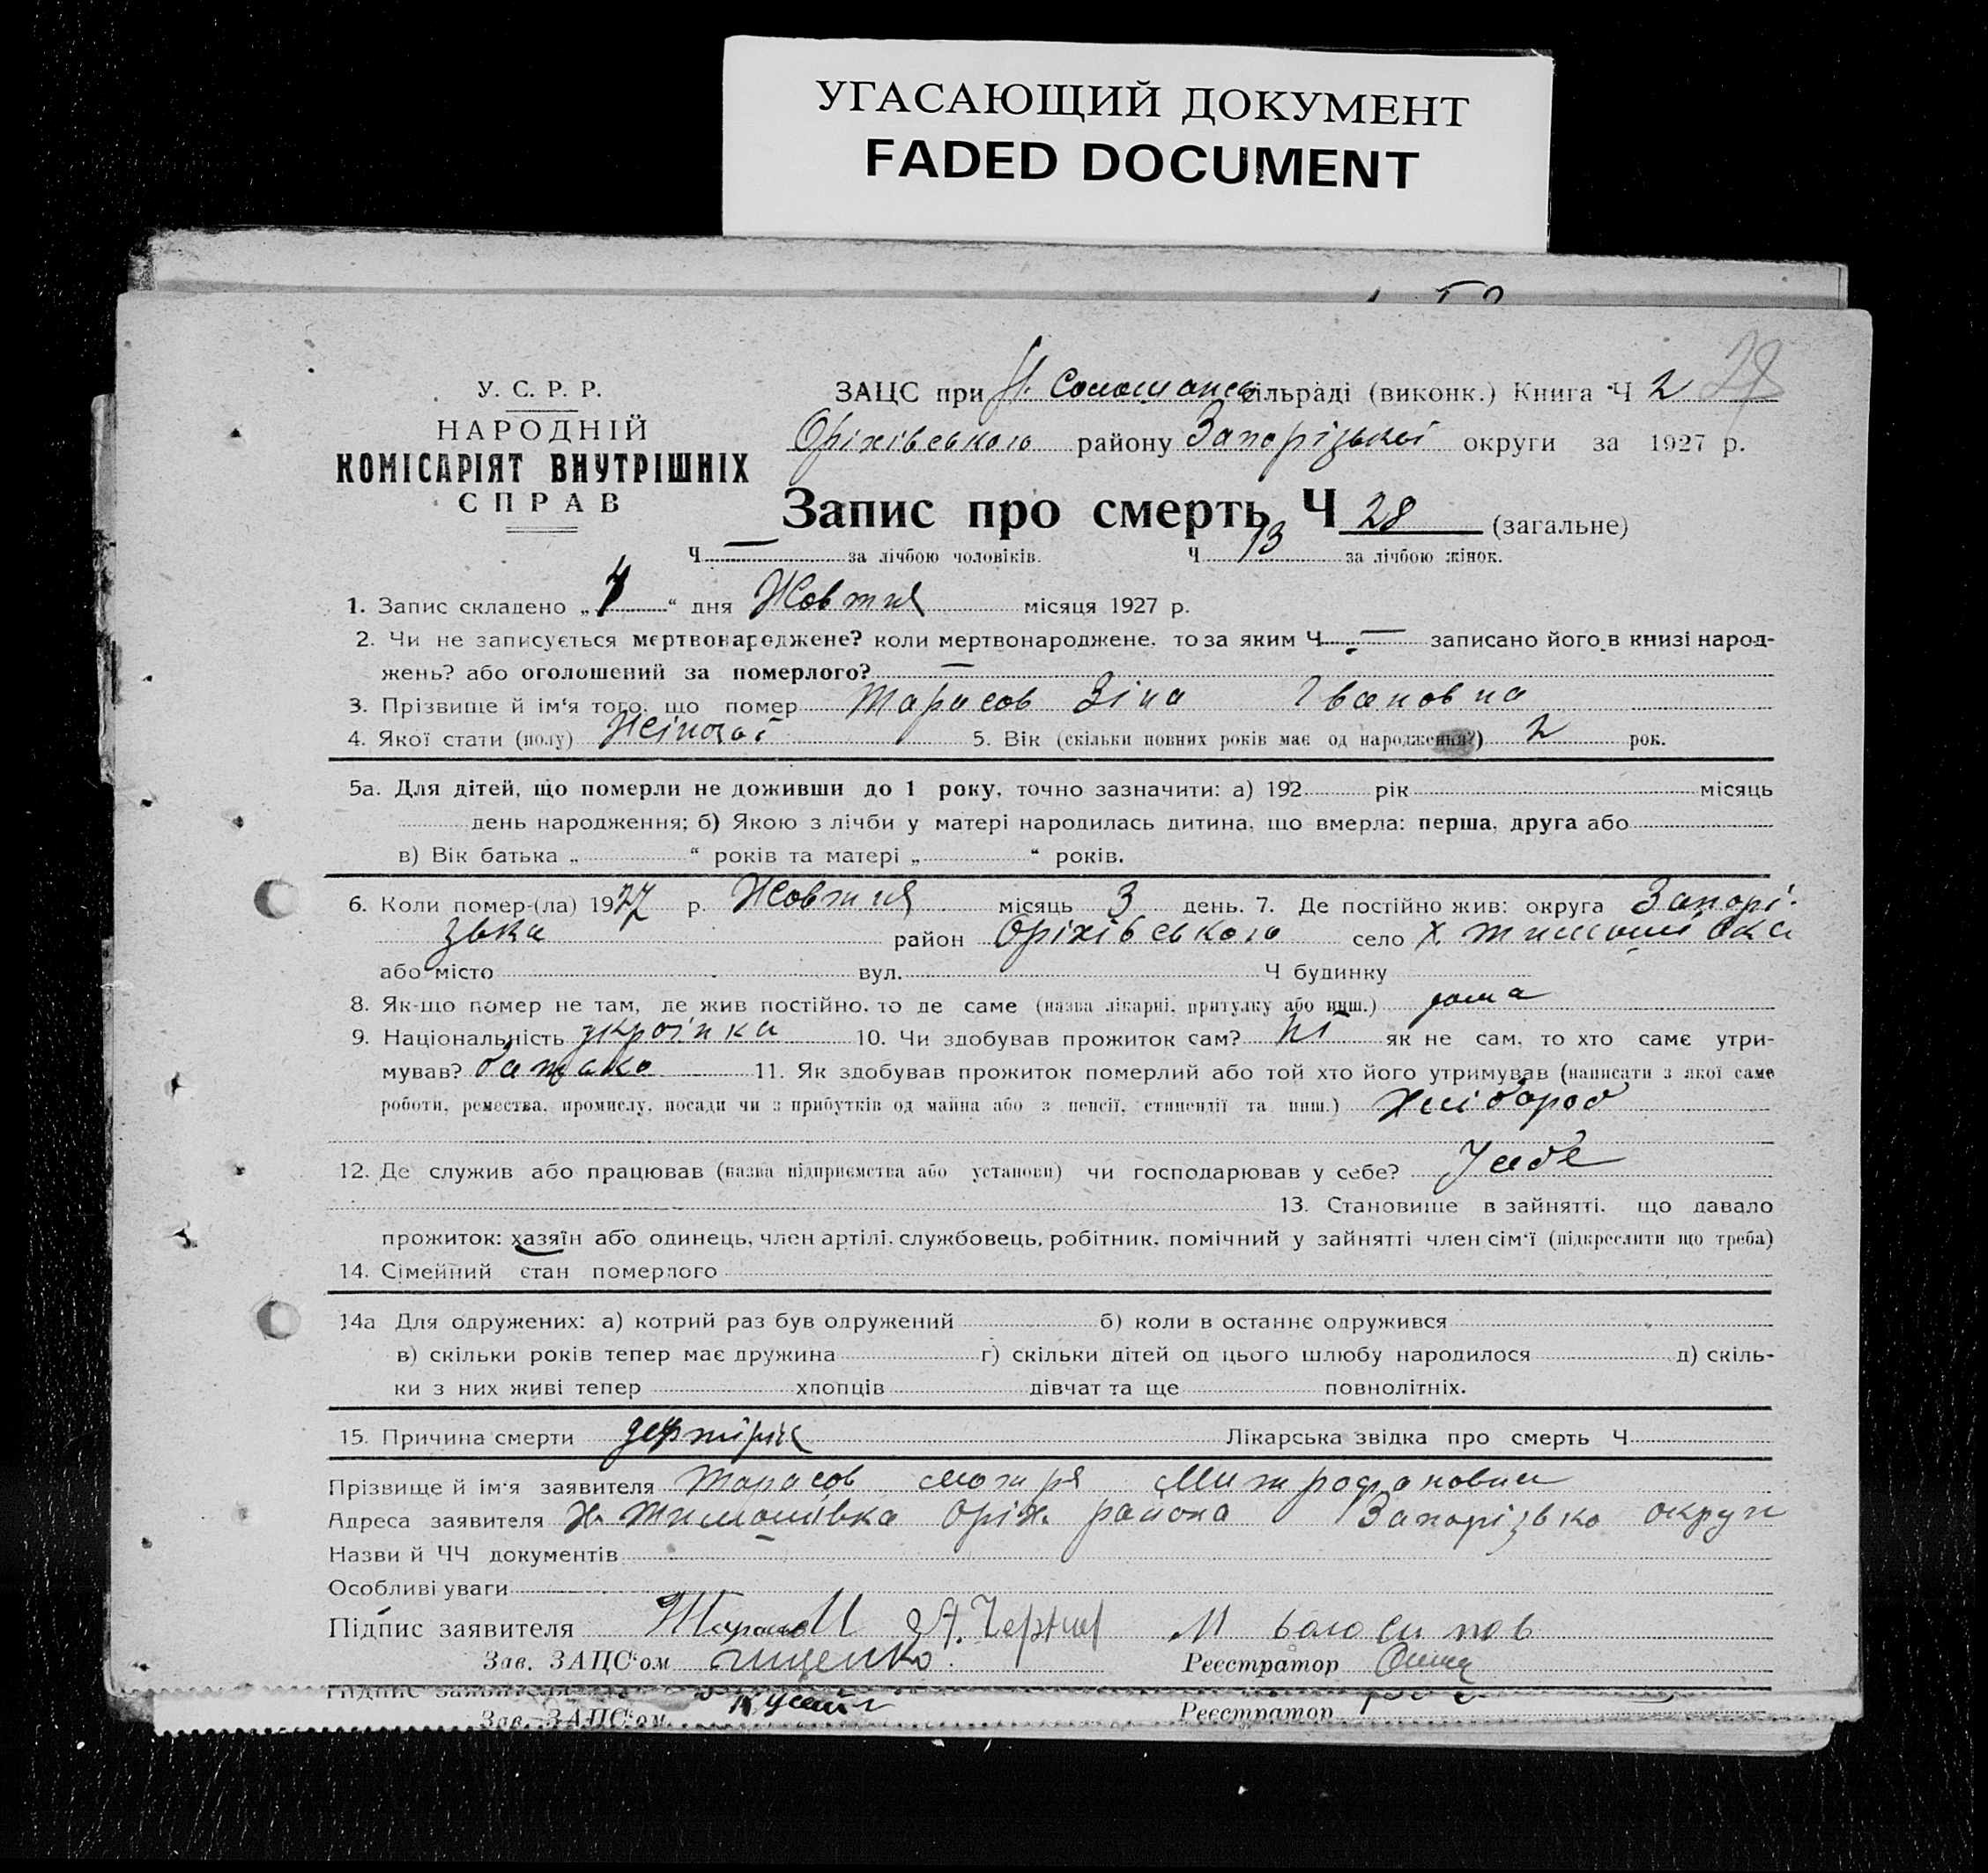 УГАСАЮЩИЙ ДОКУМЕНТ
FADED DOCUMENT
У. С. Р. Р.
НАРОДНІЙ
КОМІСАРІЯТ ВНУТРІШНІХ
СПРАВ
ЗАЦС при сільраді (виконк.) Книга Ч 2 28
Оріхівського району Запорізької округи за 1927 р.
Запис про смерть Ч 28 (загальне)
Ч — за лічбою чоловіків. Ч 13 за лічбою жінок.
1. Запис складено „ “ дня Жовтня місяця 1927 р.
2. Чи не записується мертвонароджене? коли мертвонароджене, то за яким Ч — записано його в книзі народ-
жень? або оголошений за померлого? —
3. Прізвище й ім'я того, що помер Тарасов Зіна Івановна
4. Якої стати (полу) Жіночої 5. Вік (скільки повних років має од народження?) 2 рок.
5а. Для дітей, що померли не доживши до 1 року, точно зазначити: а) 192 рік місяць
день народження; б) Якою з лічби у матері народилась дитина, що вмерла: перша, друга або
в) Вік батька „ “ років та матері „ “ років.
6. Коли помер-(ла) 1927 р. Жовтня місяць 3 день. 7. Де постійно жив: округа Запорі-
зька район Оріхівського село х. Тимошівка
або місто вул. Ч будинку
8. Як-що помер не там, де жив постійно, то де саме (назва лікарні, притулку або инш.) дома
9. Національність українка 10. Чи здобував прожиток сам? ні як не сам, то хто саме утри-
мував? батько 11. Як здобував прожиток померлий або той хто його утримував (написати з якої саме
роботи, ремества, промислу, посади чи з прибутків од майна або з пенсії, стипендії та инш.) Хлібороб
12. Де служив або працював (назва підприємства або установи) чи господарював у себе? У себе
13. Становище в зайнятті, що давало
прожиток: хазяїн або одинець, член артілі, службовець, робітник, помічний у зайнятті член сім'ї (підкреслити що треба)
14. Сімейний стан померлого
14а Для одружених: а) котрий раз був одружений б) коли в останнє одружився
в) скільки років тепер має дружина г) скільки дітей од цього шлюбу народилося д) скіль-
ки з них живі тепер хлопців дівчат та ще повнолітніх.
15. Причина смерти Лікарська звідка про смерть Ч
Прізвище й ім'я заявителя Тарасов Митрофанович
Адреса заявителя х. Тимошівка Оріх. района Запорізько округи
Назви й ЧЧ документів
Особливі уваги
Підпис заявителя
Зав. ЗАЦС'ом Реєстратор
Підпис заявителя
Зав. ЗАЦС'ом Реєстратор